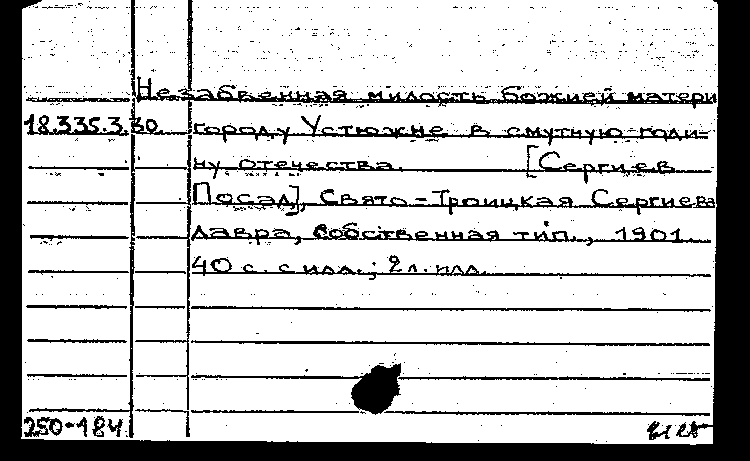 Незабвенная милость божией матери
18.335.3.30. городу Устюжне в смутную годи-
ну отечества. [Сергиев
Посад], Свято-Троицкая Сергиева
лавра, собственная тип., 1901.
40 с. с илл.; 2 л. илл.
250-184